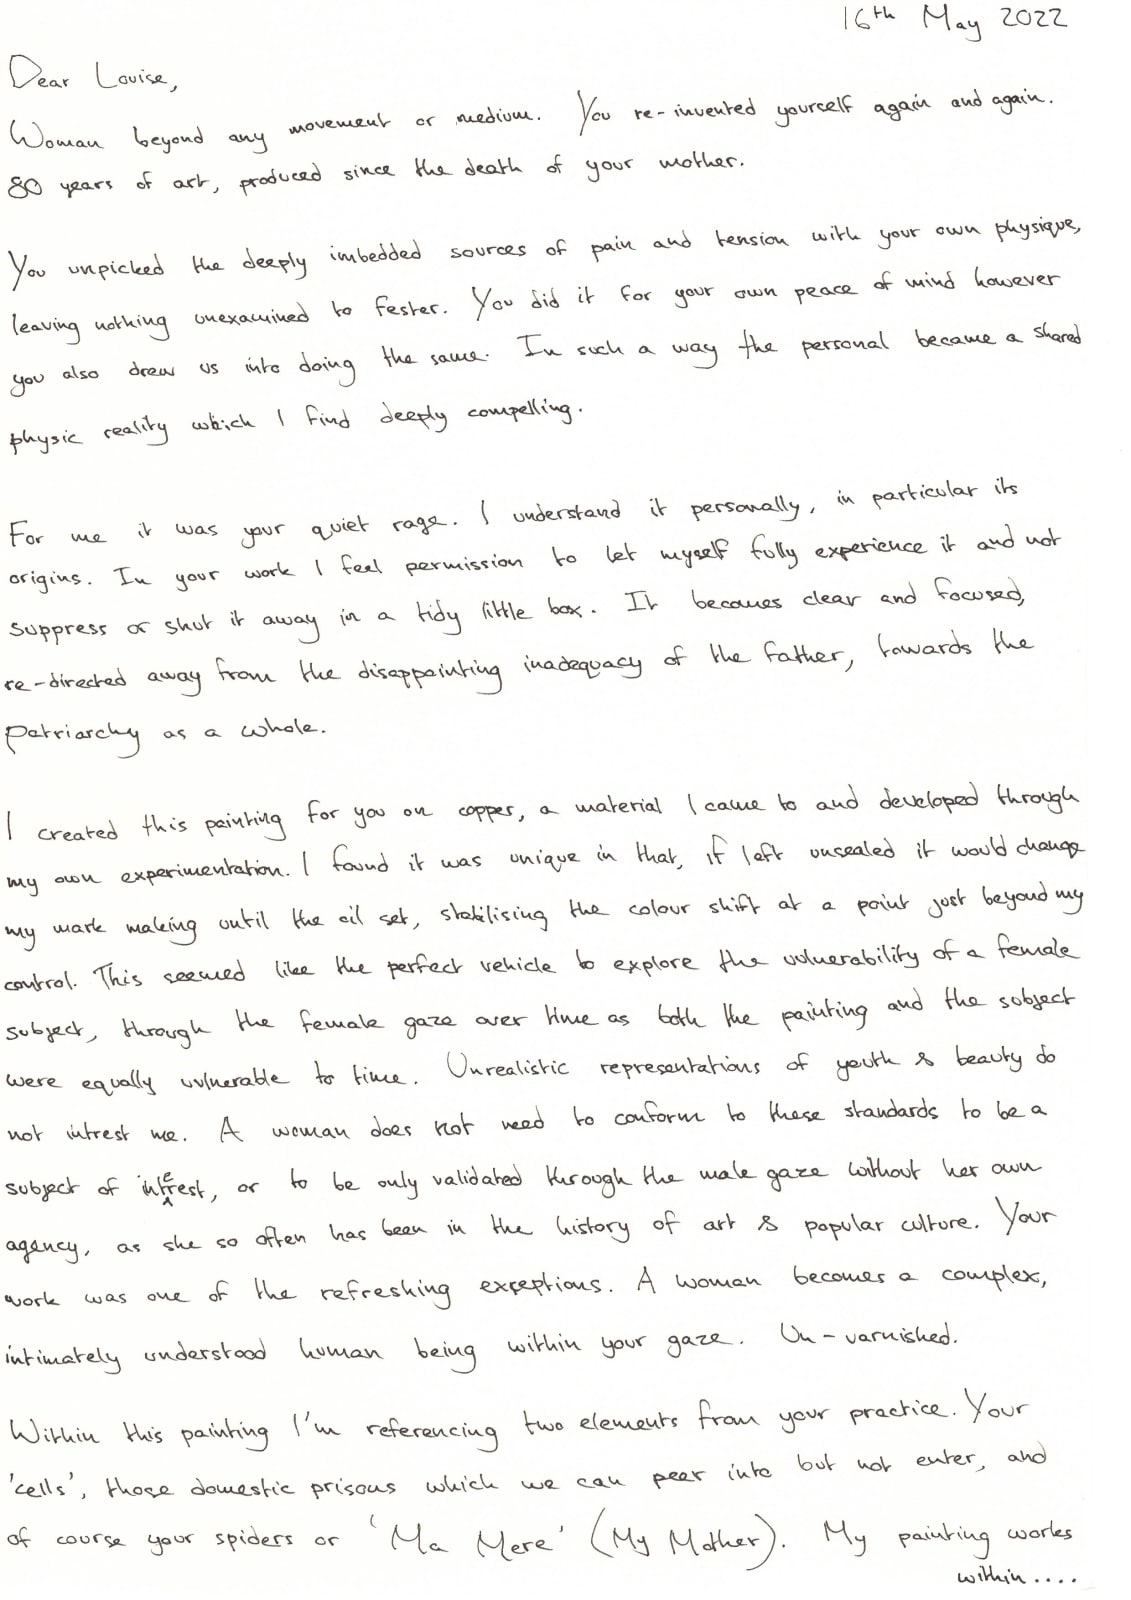 16th May 2022
Dear Louise,
Woman beyond any movement or medium. You re-invented yourself again and again.
80 years of art, produced since the death of your mother.
You unpicked the deeply imbedded sources of pain and tension with your own physique,
leaving nothing unexamined to fester. You did it for your own peace of mind however
you also drew us into doing the same. In such a way the personal became a shared
physic reality which I find deeply compelling.
For me it was your quiet rage. I understand it personally, in particular its
origins. In your work I feel permission to let myself fully experience it and not
suppress or shut it away in a tidy little box. It becomes clear and focused,
re-directed away from the disappointing inadequacy of the father, towards the
patriarchy as a whole.
I created this painting for you on copper, a material I came to and developed through
my own experimentation. I found it was unique in that, if left unsealed it would change
my mark making until the oil set, stabilising the colour shift at a point just beyond my
control. This seemed like the perfect vehicle to explore the vulnerability of a female
subject, through the female gaze over time as both the painting and the subject
were equally vulnerable to time. Unrealistic representations of youth & beauty do
not intrest me. A woman does not need to conform to these standards to be a
subject of interest, or to be only validated through the male gaze without her own
agency, as she so often has been in the history of art & popular culture. Your
work was one of the refreshing exceptions. A woman becomes a complex,
intimately understood human being within your gaze. Un-varnished.
Within this painting I'm referencing two elements from your practice. Your
'cells', those domestic prisons which we can peer into but not enter, and
of course your spiders or 'Ma Mere' (My Mother). My painting works
within....